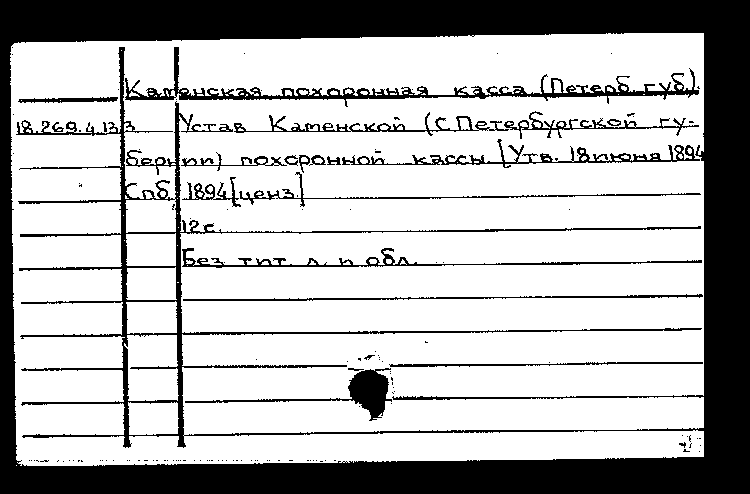 Каменская похоронная касса (Петерб. губ).
18.269.4.133 Устав Каменской (С.Петербургской гу-
бернии) похоронной кассы. [Утв. 18 июня 1894
Спб. 1894 [ценз.]
12 с.
Без тит. л. и обл.